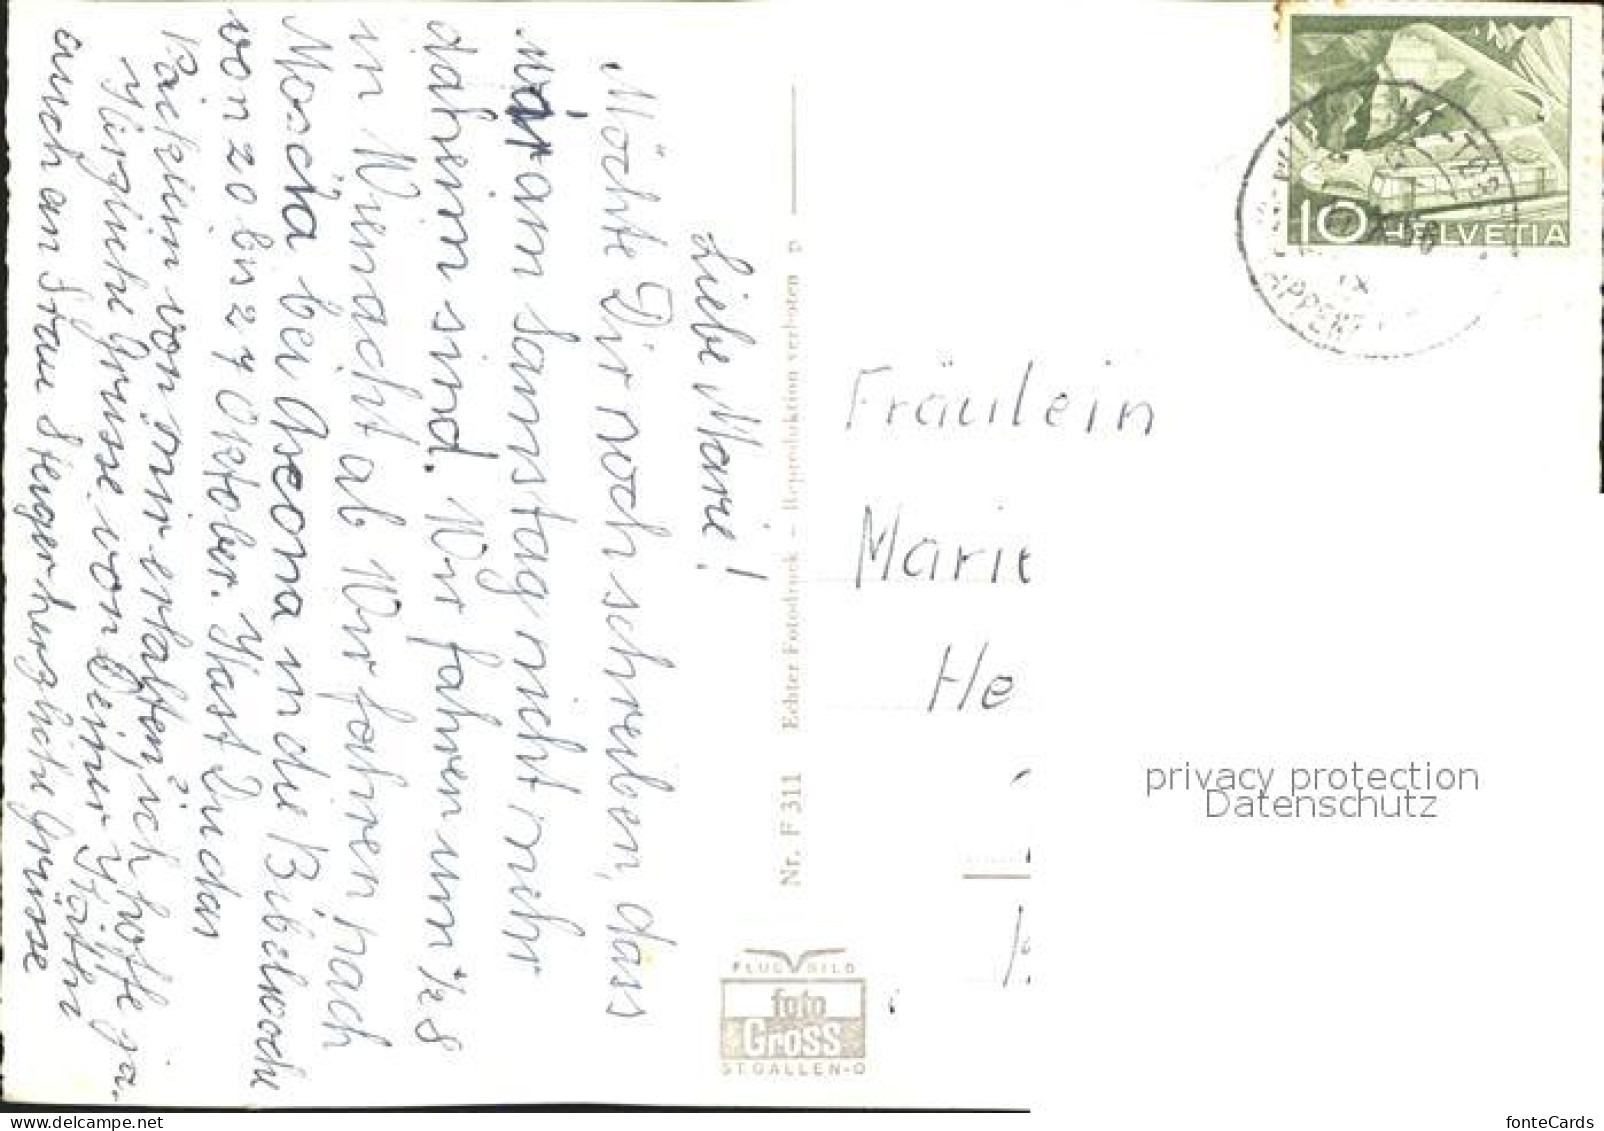 Liebe Marie!
Möchte Dir noch schreiben, dass
wir am Samstag nicht mehr
daheim sind. Wir fahren um ½ 8
in Wienacht ab Wir fahren nach
Moscia bei Ascona in die Bibelwoche
von 20 bis 27 Oktober. Hast Du das
von mir erhalten, ich hoffe ja.
Herzliche Grüsse von Deiner
auch an Frau Steiger herzliche Grüsse
Nr. F 311 Echter Fotodruck – Reproduktion verboten P
FLUG BILD
foto
Gross
ST. GALLEN-O
10 HELVETIA
APPENZ
Fräulein
Marie
He
privacy protection
Datenschutz
www.delcampe.net
fonteCards